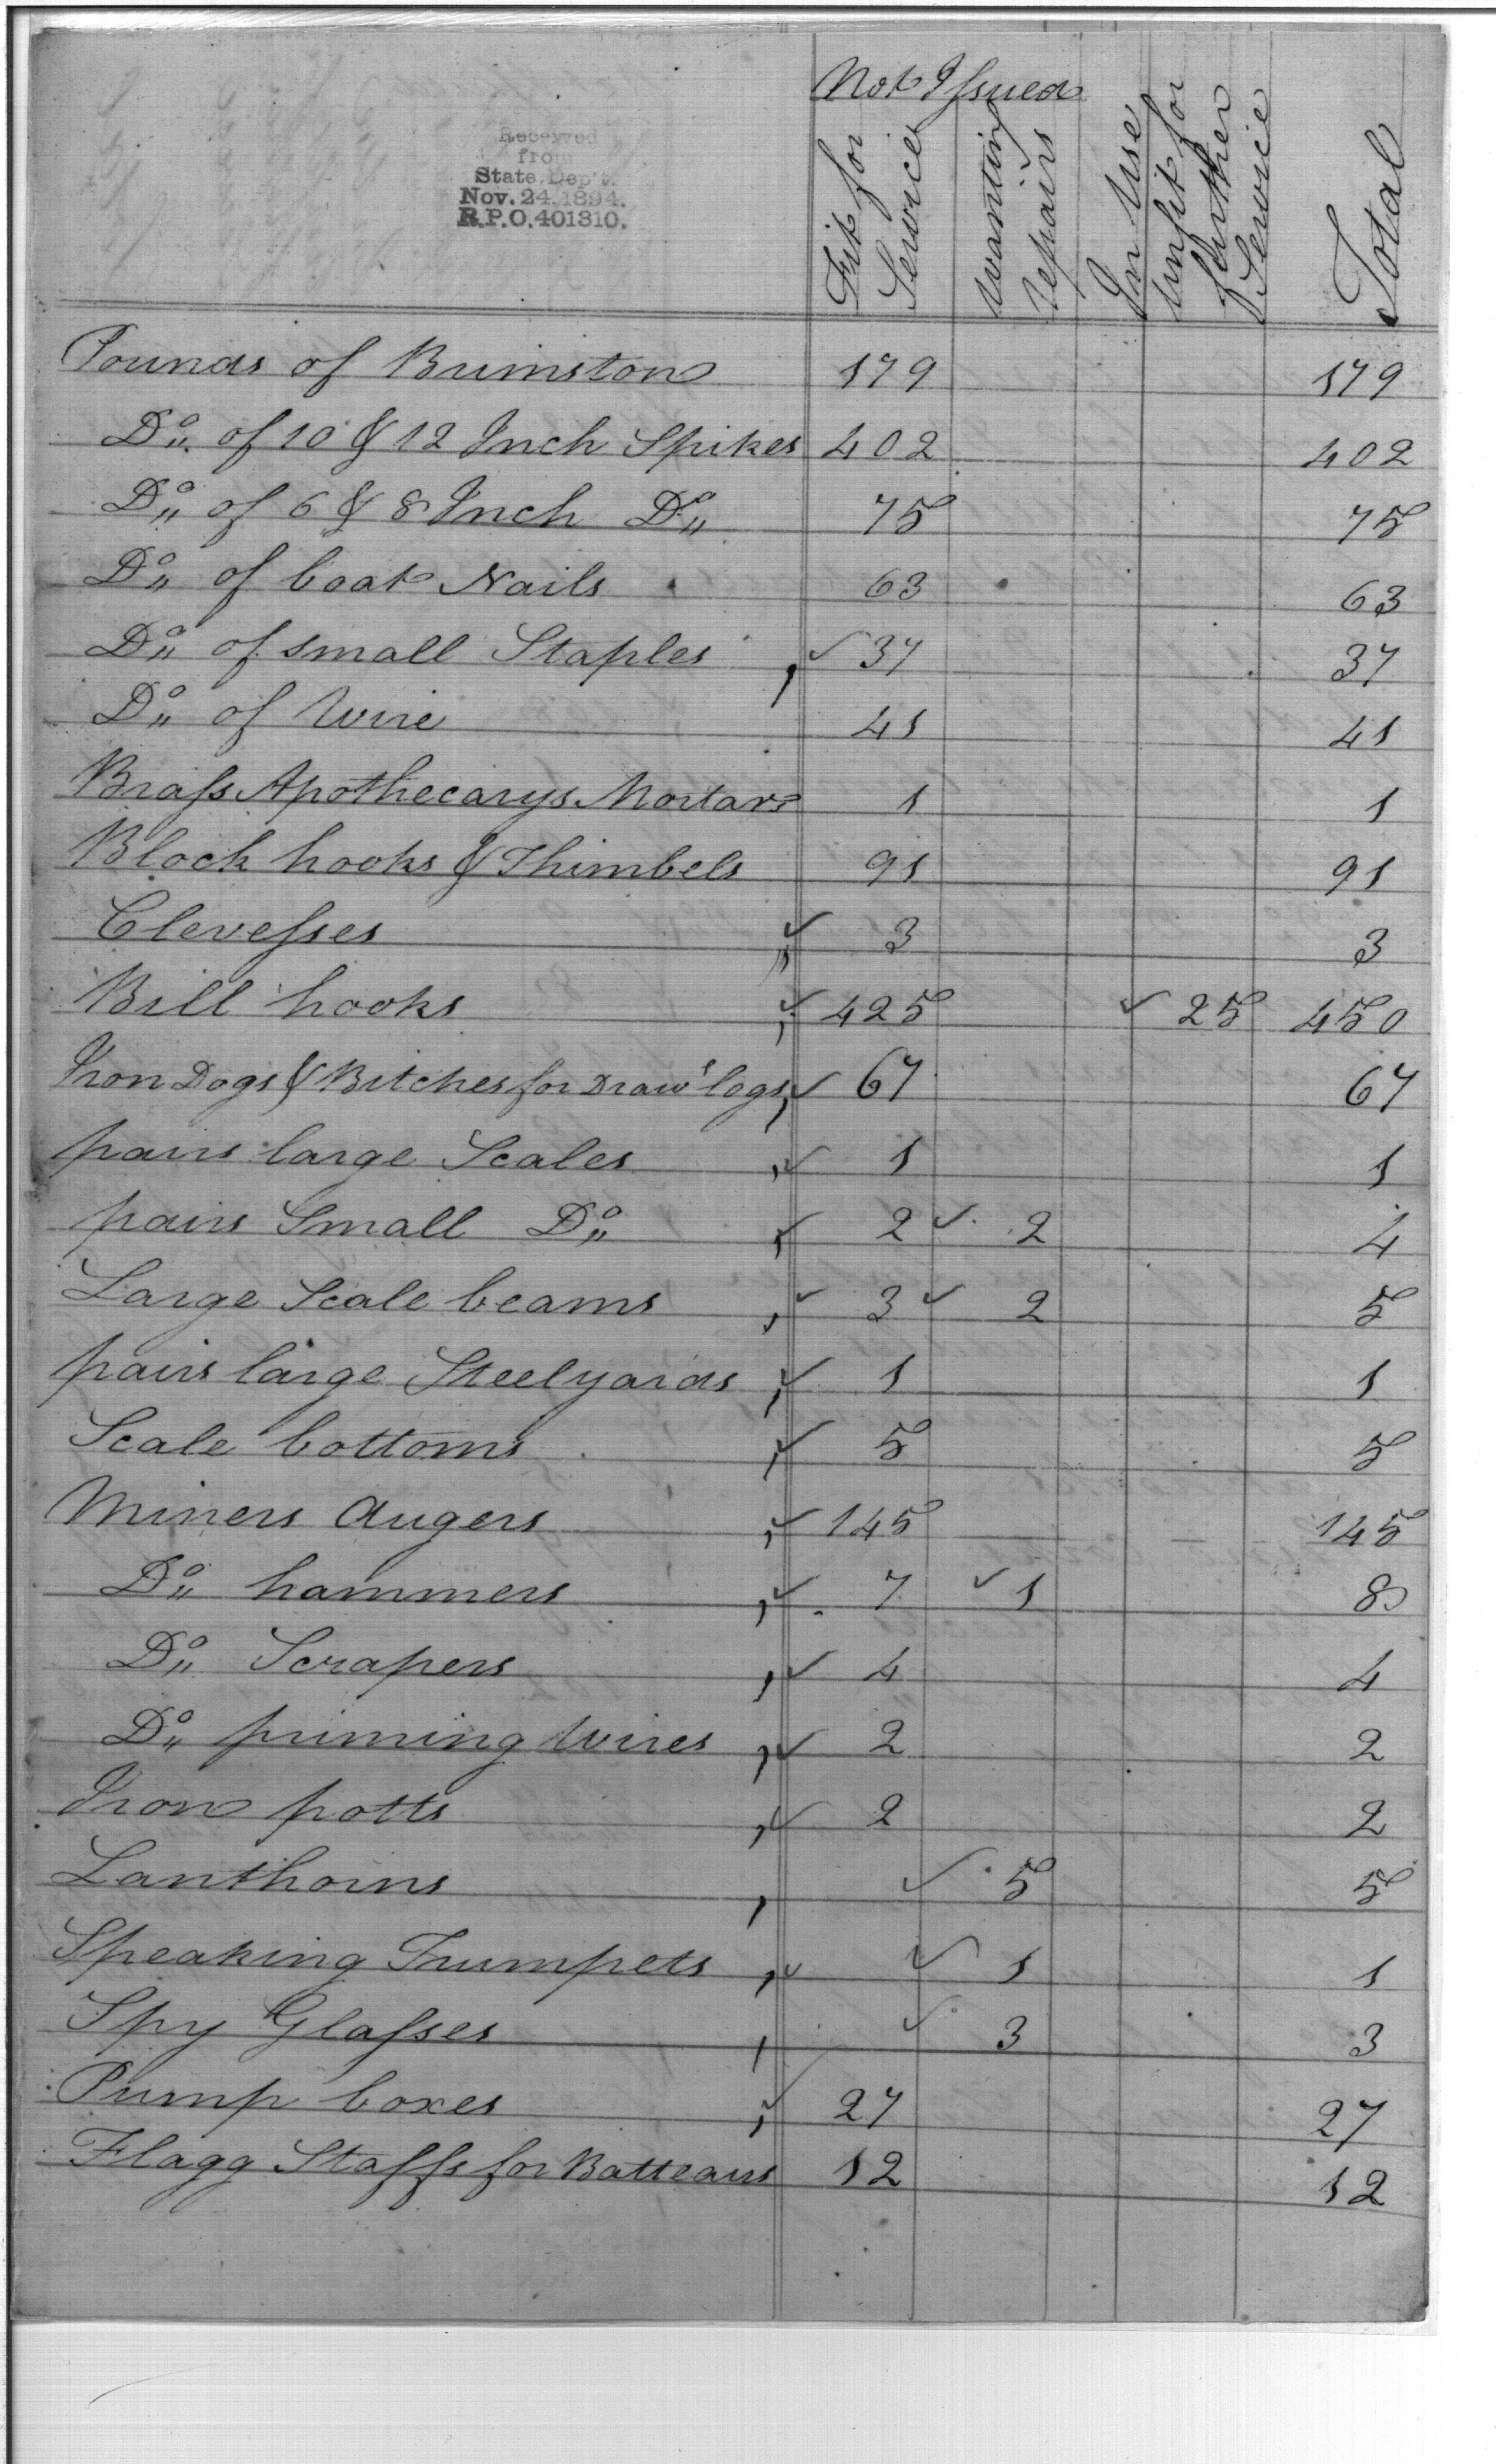 Not Issued
Fit for Service
wanting repairs
In Use
unfit for further Service
Total
Received
from
State Dep't.
Nov. 24. 1894.
R.P.O. 401310.
Pounds of Brimston 179 179
Do,, of 10 & 12 Inch Spikes 402 402
Do,, of 6 & 8 Inch Do,, 75 75
Do,, of boat Nails 63 63
Do,, of small Staples ✓ 37 37
Do,, of Wire 41 41
Brass Apothecarys Mortars 1 1
Block hooks & Thimbels 91 91
Clevesses ✓ 3 3
Bill hooks ✓ 425 ✓ 25 450
Iron Dogs & Bitches for Draws logs ✓ 67 67
pairs large Scales ✓ 1 1
pairs Small Do,, ✓ 2 ✓ 2 4
Large Scale beams ✓ 3 ✓ 2 5
pairs large Steelyards ✓ 1 1
Scale bottoms ✓ 5 5
Miners Augers ✓ 145 145
Do,, hammers ✓ 7 ✓ 1 8
Do,, Scrapers ✓ 4 4
Do,, priming Wires ✓ 2 2
Iron potts ✓ 2 2
Lanthorns ✓ 5 5
Speaking Trumpets ✓ ✓ 1 1
Spy Glasses ✓ 3 3
Pump boxes ✓ 27 27
Flagg Staffs for Batteaus 12 12